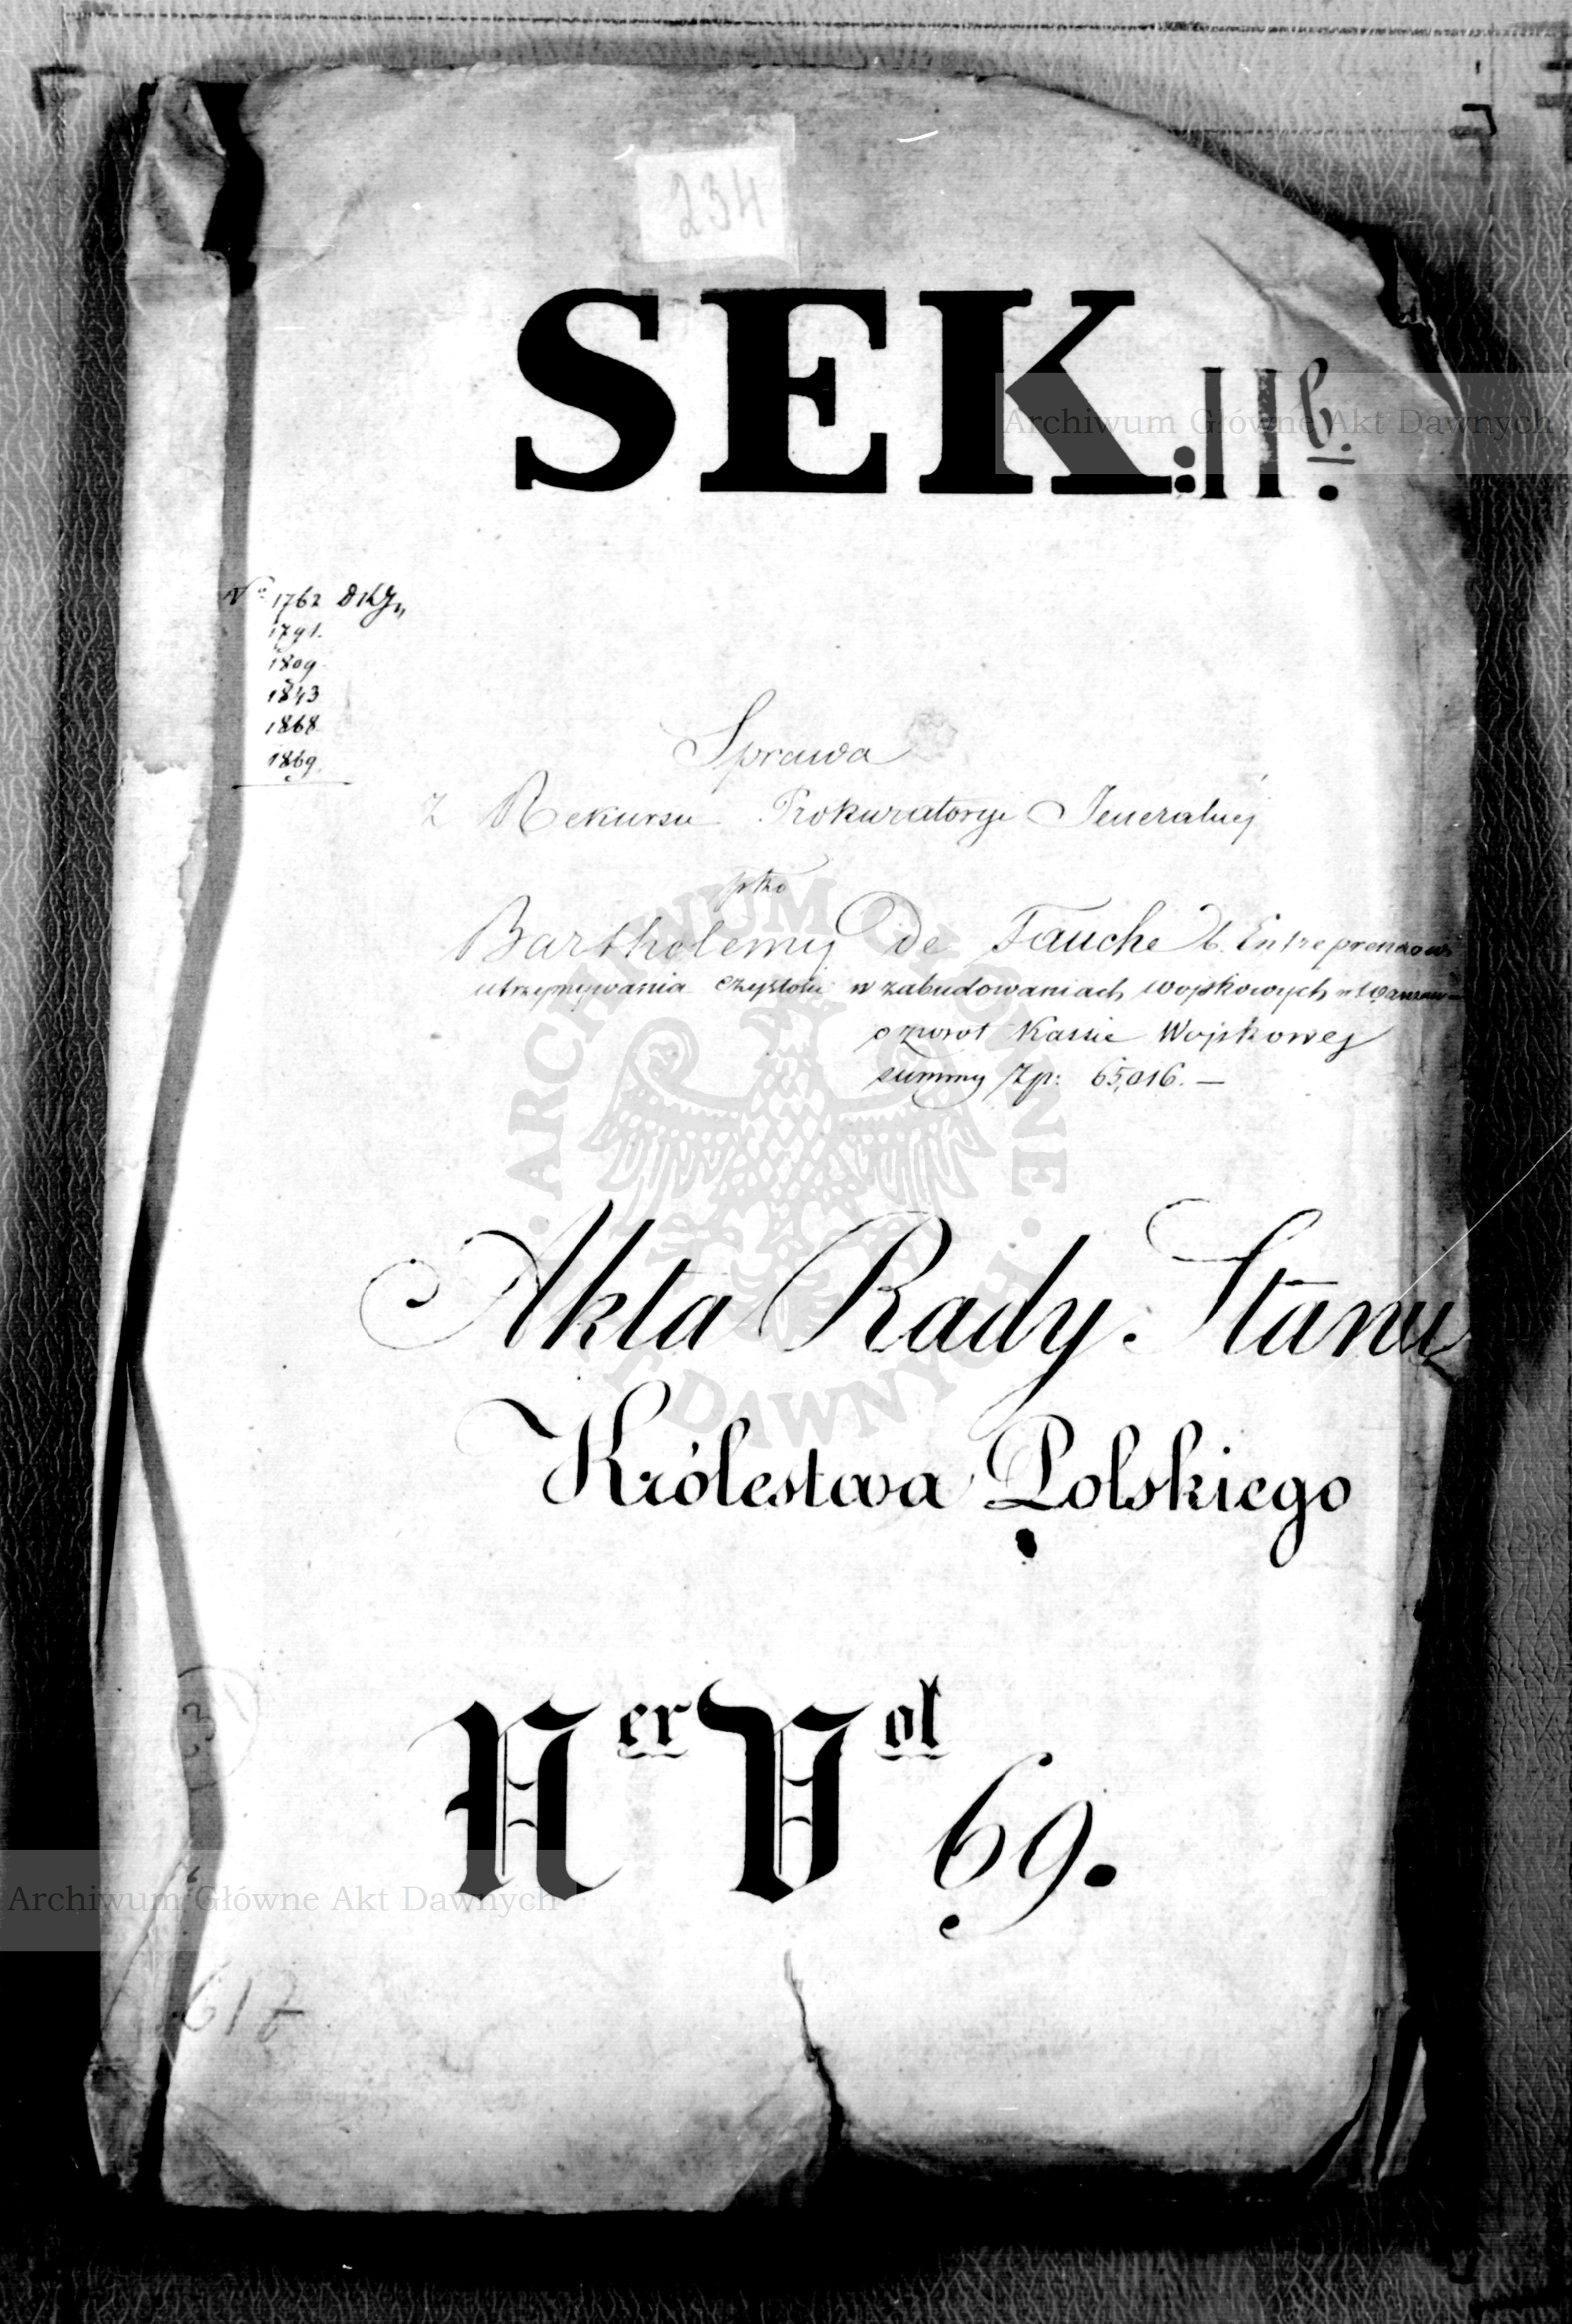 234
SEK: II b.
No 1762 DKJ
1791.
1809
1843
1868
1869
Sprawa
z Rekursu Prokuratoryi Jeneralnéj
ptko
Bartholemy De Fauche b. Entreprenerowi
utrzymywania czystości w zabudowaniach wojskowych w Warszawie
o zwrot Kassie Wojskowej
summy Zp: 65,016. —
Akta Rady Stanu
Królestwa Polskiego
Ner Vol 69.
617
Archiwum Główne Akt Dawnych
Archiwum Główne Akt Dawnych
ARCHIWUM GŁÓWNE AKT DAWNYCH